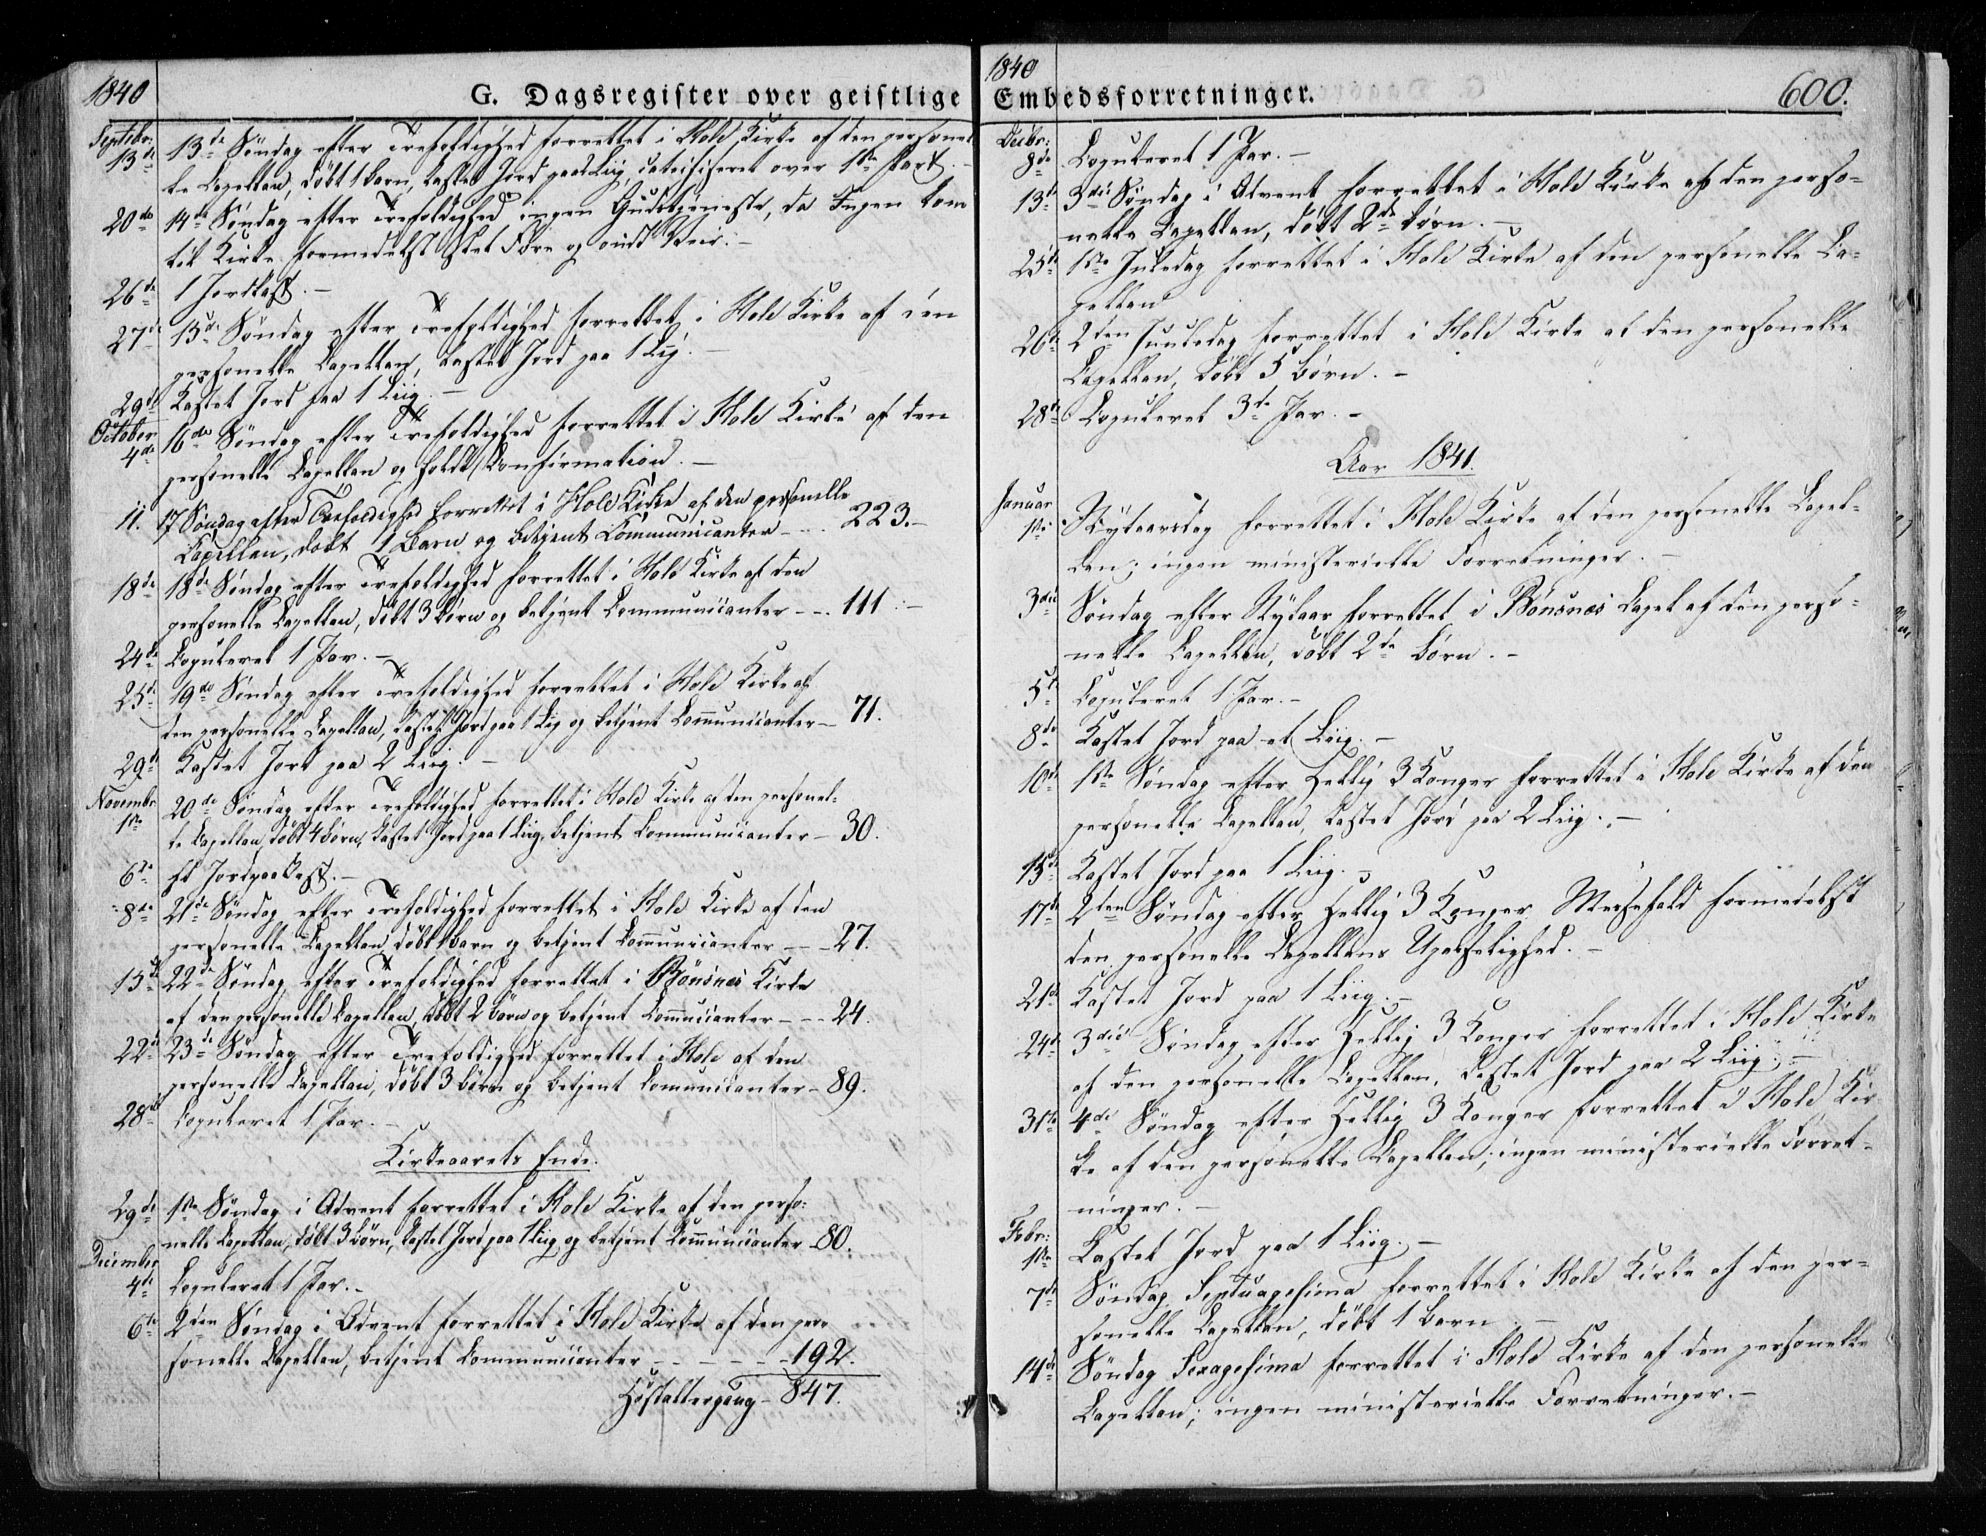 1840
G. Dagsregister over geistlige
Septbr:
13de 13de Søndag efter Trefoldighed forrettet i Hole Kirke af den personel-
le Capellan, døbt 1 barn, kastet Jord paa Liig, catechiseret over 1ste Part.
20de 14de Søndag efter Trefoldighed ingen Gudstjeneste, da Ingen kom
til Kirke formedelst slet Føre og ondt Veir. –
26de 1 Jordkast. –
27de 15de Søndag efter Trefoldighed forrettet i Hole Kirke af den
personelle Capellan, kastet Jord paa 1 Liig. –
29de Kastet Jord paa 1 Liig. –
October
4de 16de Søndag efter Trefoldighed forrettet i Hole Kirke af den
personelle Capellan og holdt Confirmation. –
11. 17 Søndag efter Trefoldighed forrettet i Hole Kirke af den personelle
Capellan, døbt 1 Barn og betjent Communicanter - - . 223. –
18de 18de Søndag efter Trefoldighed forrettet i Hole Kirke af den
personelle Capellan, døbt 3 børn og betjent Communicanter - - . 111. –
24de Copuleret 1 Par. –
25de 19de Søndag efter Trefoldighed forrettet i Hole Kirke af
den personelle Capellan, kastet Jord paa 1 Liig og betjent Communicanter – 71.
29de Kastet Jord paa 2 Liig. –
Novembr
1ste 20de Søndag efter Trefoldighed forrettet i Hole Kirke af den personel-
le Capellan, døbt 4 børn, kastet Jord paa 1 Liig, betjent Communicanter – 30.
6te et Jordpaakast. –
8de 21de Søndag efter Trefoldighed forrettet i Hole Kirke af den
personelle Capellan, døbt 1 barn og betjent Communicanter - - - 27.
15de 22de Søndag efter Trefoldighed forrettet i Bönsnes Kirke
af den personelle Capellan, døbt 2 børn og betjent Communicanter - - - 24.
22de 23de Søndag efter Trefoldighed forrettet i Hole af den
personelle Capellan, døbt 3 børn og betjent Communicanter – 89.
28de Copuleret 1 Par. –
Kirkeaarets Ende.
29de 1ste Søndag i Advent forrettet i Hole Kirke af den perso-
nelle Capellan, døbt 3 børn, kastet Jord paa 1 Liig og betjent Communicanter 80.
December
4de Copuleret 1 Par. –
6te 2den Søndag i Advent forrettet i Hole Kirke af den per-
sonelle Capellan, betjent Communicanter - - - - - - 192.
Høstaltergang – 847.
1840
Embedsforretninger.
600.
Decbr:
8de Copuleret 1 Par. –
13de 3die Søndag i Advent forrettet i Hole Kirke af den perso-
nelle Capellan, døbt 2de børn. –
25de 1ste Juledag forrettet i Hole Kirke af den personelle Ca-
pellan
26de 2den Juuledag forrettet i Hole Kirke af den personelle
Capellan, døbt 5 børn. –
28de Copuleret 3de Par. –
Aar 1841.
Januar
1ste Nytaarsdag forrettet i Hole Kirke af den personelle Capel-
lan; ingen ministerielle Forretninger. –
3die Søndag efter Nytaar forrettet i Bönsnes Capel af den perso-
nelle Capellan, døbt 2de børn. –
5te Copuleret 1 Par. –
8de Kastet Jord paa et Liig. –
10de 1ste Søndag efter Hellig 3 Konger forrettet i Hole Kirke af den
personelle Capellan, kastet Jord paa 2 Liig. –
15de Kastet Jord paa 1 Liig. –
17de 2den Søndag efter Hellig 3 Konger Messefald formedelst
den personelle Capellans Upasselighed. –
21de Kastet Jord paa 1 Liig. –
24de 3die Søndag efter Hellig 3 Konger forrettet i Hole Kirke
af den personelle Capellan, kastet Jord paa 2 Liig. –
31te 4de Søndag efter Hellig 3 Konger forrettet i Hole Kir-
ke af den personelle Capellan; ingen ministerielle Forret-
ninger. –
Febr:
1ste Kastet Jord paa 1 Liig. –
7de Søndag Septuagesima forrettet i Hole Kirke af den per-
sonelle Capellan, døbt 1 barn. –
14de Søndag Sexagesima forrettet i Hole Kirke af den personelle
Capellan; ingen ministerielle Forretninger. –